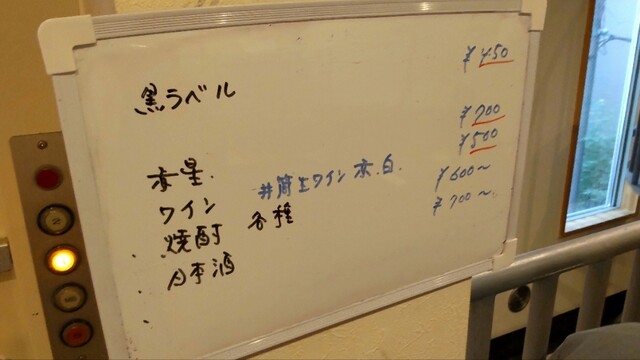 黒ラベル ¥450
赤星. ¥700
ワイン 井筒生ワイン 赤.白. ¥500
焼酎 各種 ¥600〜
日本酒 ¥700〜